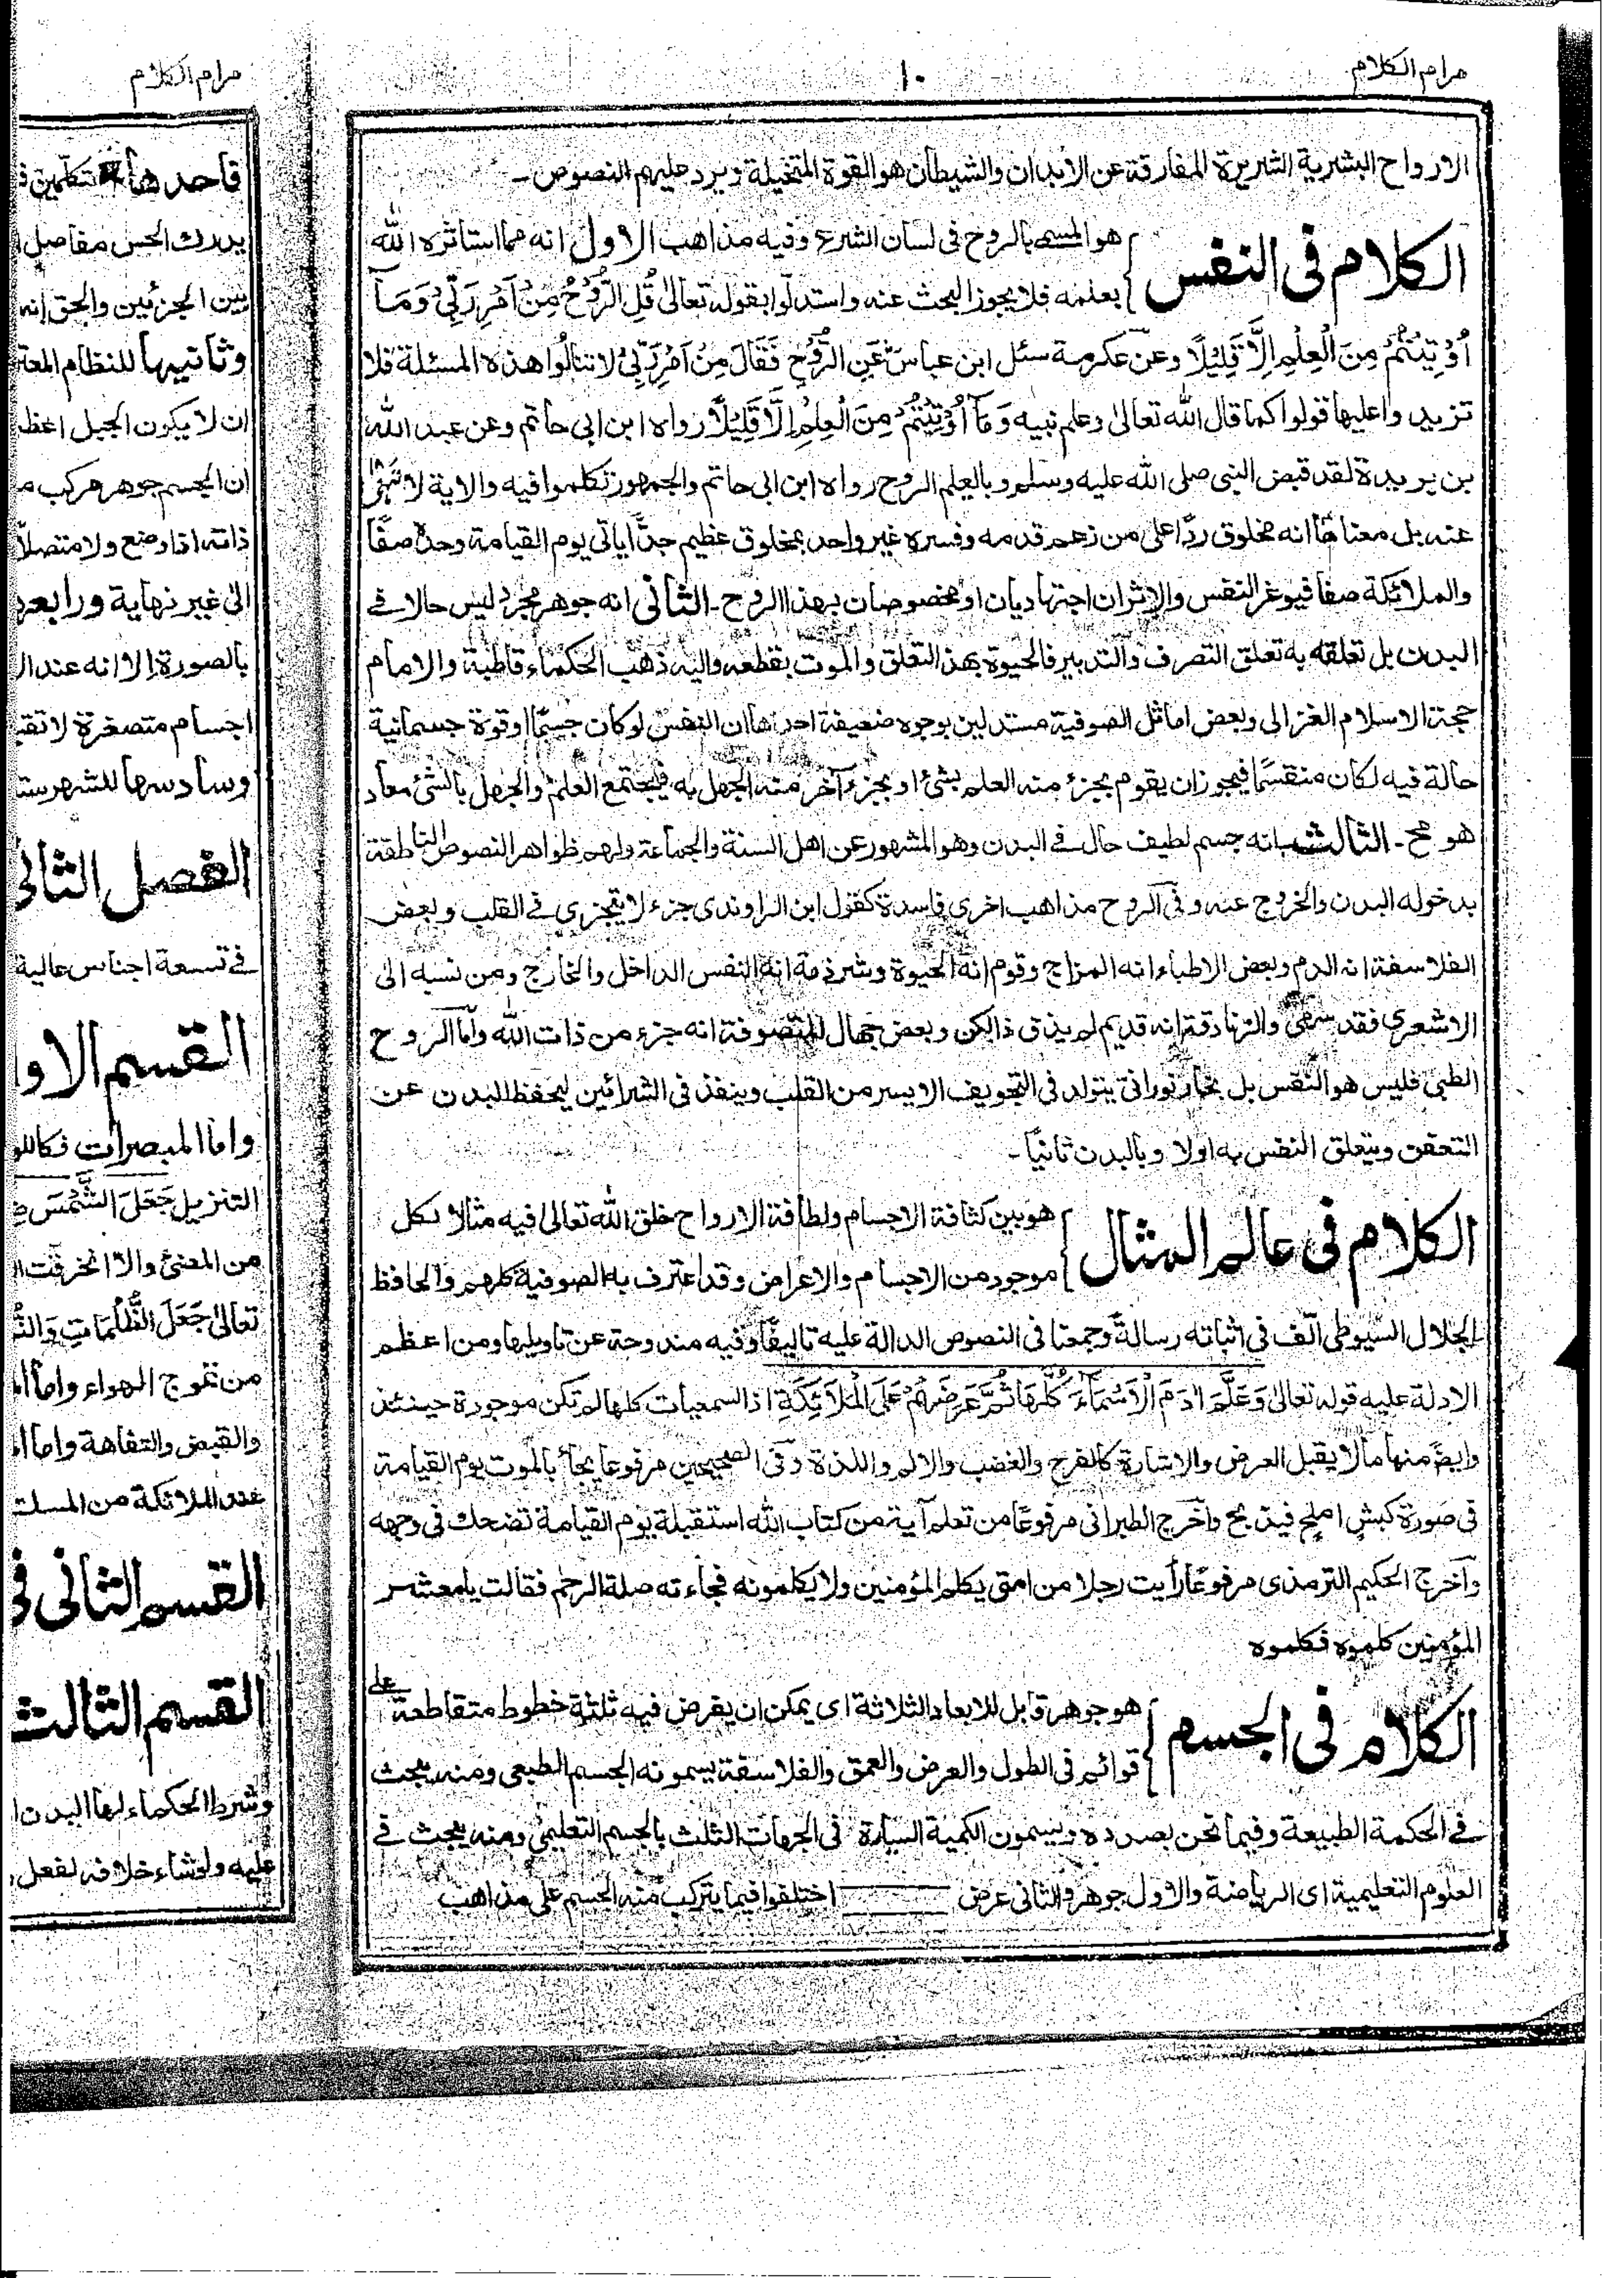 مرام الكلام
١٠
الارواح البشرية الشريرة المفارقة عن الابدان والشيطان هو القوة المتخيلة ويرد عليهم النصوص۔
الكلام فى النفس
هو المسمى بالروح فى لسان الشرع وفيه مذاهب الاول انه مما استاثره الله
بعلمه فلا يجوز البحث عنه واستدلوا بقوله تعالىٰ قُلِ الرُّوْحُ مِنْ اَمْرِ رَبِّىْ وَمَآ
اُوْتِيْتُمْ مِنَ الْعِلْمِ اِلَّا قَلِيْلًا وعن عكرمة سئل ابن عباسؓ عَنِ الرُّوْحِ فَقَالَ مِنْ اَمْرِ رَبِّىْ لا تنالُوا هذه المسئلة فلا
تزيدوا عليها قولوا كما قال الله تعالىٰ وعلم نبيه وَمَآ اُوْتِيْتُمْ مِنَ الْعِلْمِ اِلَّا قَلِيْلًا رواه ابن ابى حاتم وعن عبد الله
بن بريدة لقد قبض النبى صلى الله عليه وسلم وبالعلم الروح رواه ابن ابى حاتم والجمهور تكلموا فيه والاية لا تَنْهٰى
عنه بل معناها انه مخلوق ردًّا على من زعم قدمه وفسره غير واحد بمخلوق عظيم جدًّا ياتى يوم القيامة وحده صفًّا
والملائكة صفا فيوغر النفس والاثران اجتهاديان او مخصوصان بهذا الروح۔ الثانى انه جوهر مجرد ليس حالا فى
البدن بل تعلقه به تعلق التصرف والتدبير فالحيوة بهذ التعلق والموت بقطعه واليه ذهب الحكماء قاطبة والامام
حجة الاسلام الغزالى وبعض اماثل الصوفية مستدلين بوجوه ضعيفة احدها ان النفس لو كان جسمًا او قوة جسمانية
حالة فيه لكان منقسمًا فيجوز ان يقوم بجزء منه العلم بشئ او بجزء آخر منه الجهل به فيجتمع العلم والجهل بالشئ معاد
هو مح۔ الثالث بانه جسم لطيف حال فى البدن وهو المشهور عن اهل السنة والجماعة ولهم ظواهر النصوص الناطقة
بدخوله البدن والخروج عنه وفى الروح مذاهب اخرى فاسدة كقول ابن الراوندى جزء لا يتجزى فى القلب وبعض
الفلاسفة انه الدم وبعض الاطباء انه المزاج وقوم انه الحيوة وشرذمة انه النفس الداخل والخارج ومن نسبه الى
الاشعرى فقد سهى والزنادقة انه قديم لم يذق ذالكن وبعض جهال المتصوفة انه جزء من ذات الله واما الروح
الطبى فليس هو النفس بل بخار نورانى يتولد فى التجويف الايسر من القلب وينفذ فى الشرائين ليحفظ البدن عن
التعفن ويتعلق النفس به اولا وبالبدن ثانيًا۔
الكلام فى عالم المثال
هو بين كثافة الاجسام ولطافة الارواح خلق الله تعالى فيه مثالا لكل
موجود من الاجسام والاعراض وقد اعترف به الصوفية كلهم والحافظ
الجلال السيوطى الّف فى اثباته رسالةً وجمعنا فى النصوص الدالة عليه تاليفًا وفيه مندوحة عن تاويلها ومن اعظم
الادلة عليه قوله تعالىٰ وَعَلَّمَ اٰدَمَ الْاَسْمَآءَ كُلَّهَا ثُمَّ عَرَضَهُمْ عَلَى الْمَلَائِكَةِ اذ السمعيات كلها لم تكن موجودة حينئذ
وايضً منها ما لا يقبل العرض والاشارة كالفرح والغضب والالم واللذة وفى الصحيحين مرفوعا يجاء بالموت يوم القيامة
فى صورة كبش املح فيذبح واخرج الطبرانى مرفوعًا من تعلم آية من كتاب الله استقبلة يوم القيامة تضحك فى وجهه
واخرج الحكيم الترمذى مرفوعًا رأيت رجلا من امتى يكلم المؤمنين ولا يكلمونه فجاءته صلة الرحم فقالت يامعشر
المؤمنين كلموه فكلموه
الكلام فى الجسم
هو جوهر قابل للابعاد الثلاثة اى يمكن ان يفرض فيه ثلثة خطوط متقاطعة على
قوائم فى الطول والعرض والعمق والفلاسفة يسمونه الجسم الطبعى ومنه يبحث
فى الحكمة الطبيعة وفيما نحن بصدده ويسمون الكمية السيارة فى الجهات الثلث بالجسم التعليمى ومنه يبحث فى
العلوم التعليمية اى الرياضة والاول جوهر والثانى عرض اختلفوا فيما يتركب منه الجسم على مذاهب
مرام الكلام
فاحدها تكلمين
يدرك الحس مفاصل
بين الجزئين والحق انه
وثانيها للنظام
ان لا يكون الجبل
ان الجسم جوهر مركب
ذاته اذا وضع ولا متصلا
الى غير نهاية
بالصورة الا انه عند
اجسام متصغرة لا
وسادسها
الفصل الثانى
فى تسعة اجناس عالية
القسم
واما المبصرات
التنزيل جَعَلَ الشَّمْسَ
من المضئ والا انخرقت
تعالىٰ جَعَلَ الظُّلُمَاتِ
من تموج الهواء واما
والقبض والتفاهة واما
عدد الملائكة من
القسم الثانى
القسم الثالث
وشرط الحكماء لها البدن
عليه ولو شاء خلافه لفعل